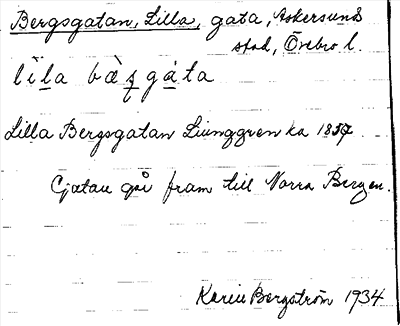 Bergsgatan, Lilla, gata, Askersunds
stad, Örebro l.
lìla bæ̀ʂgáta
Lilla Bergsgatan Ljunggren ka 1857
Gatan går fram till Norra Bergen.
Karin Bergström 1934